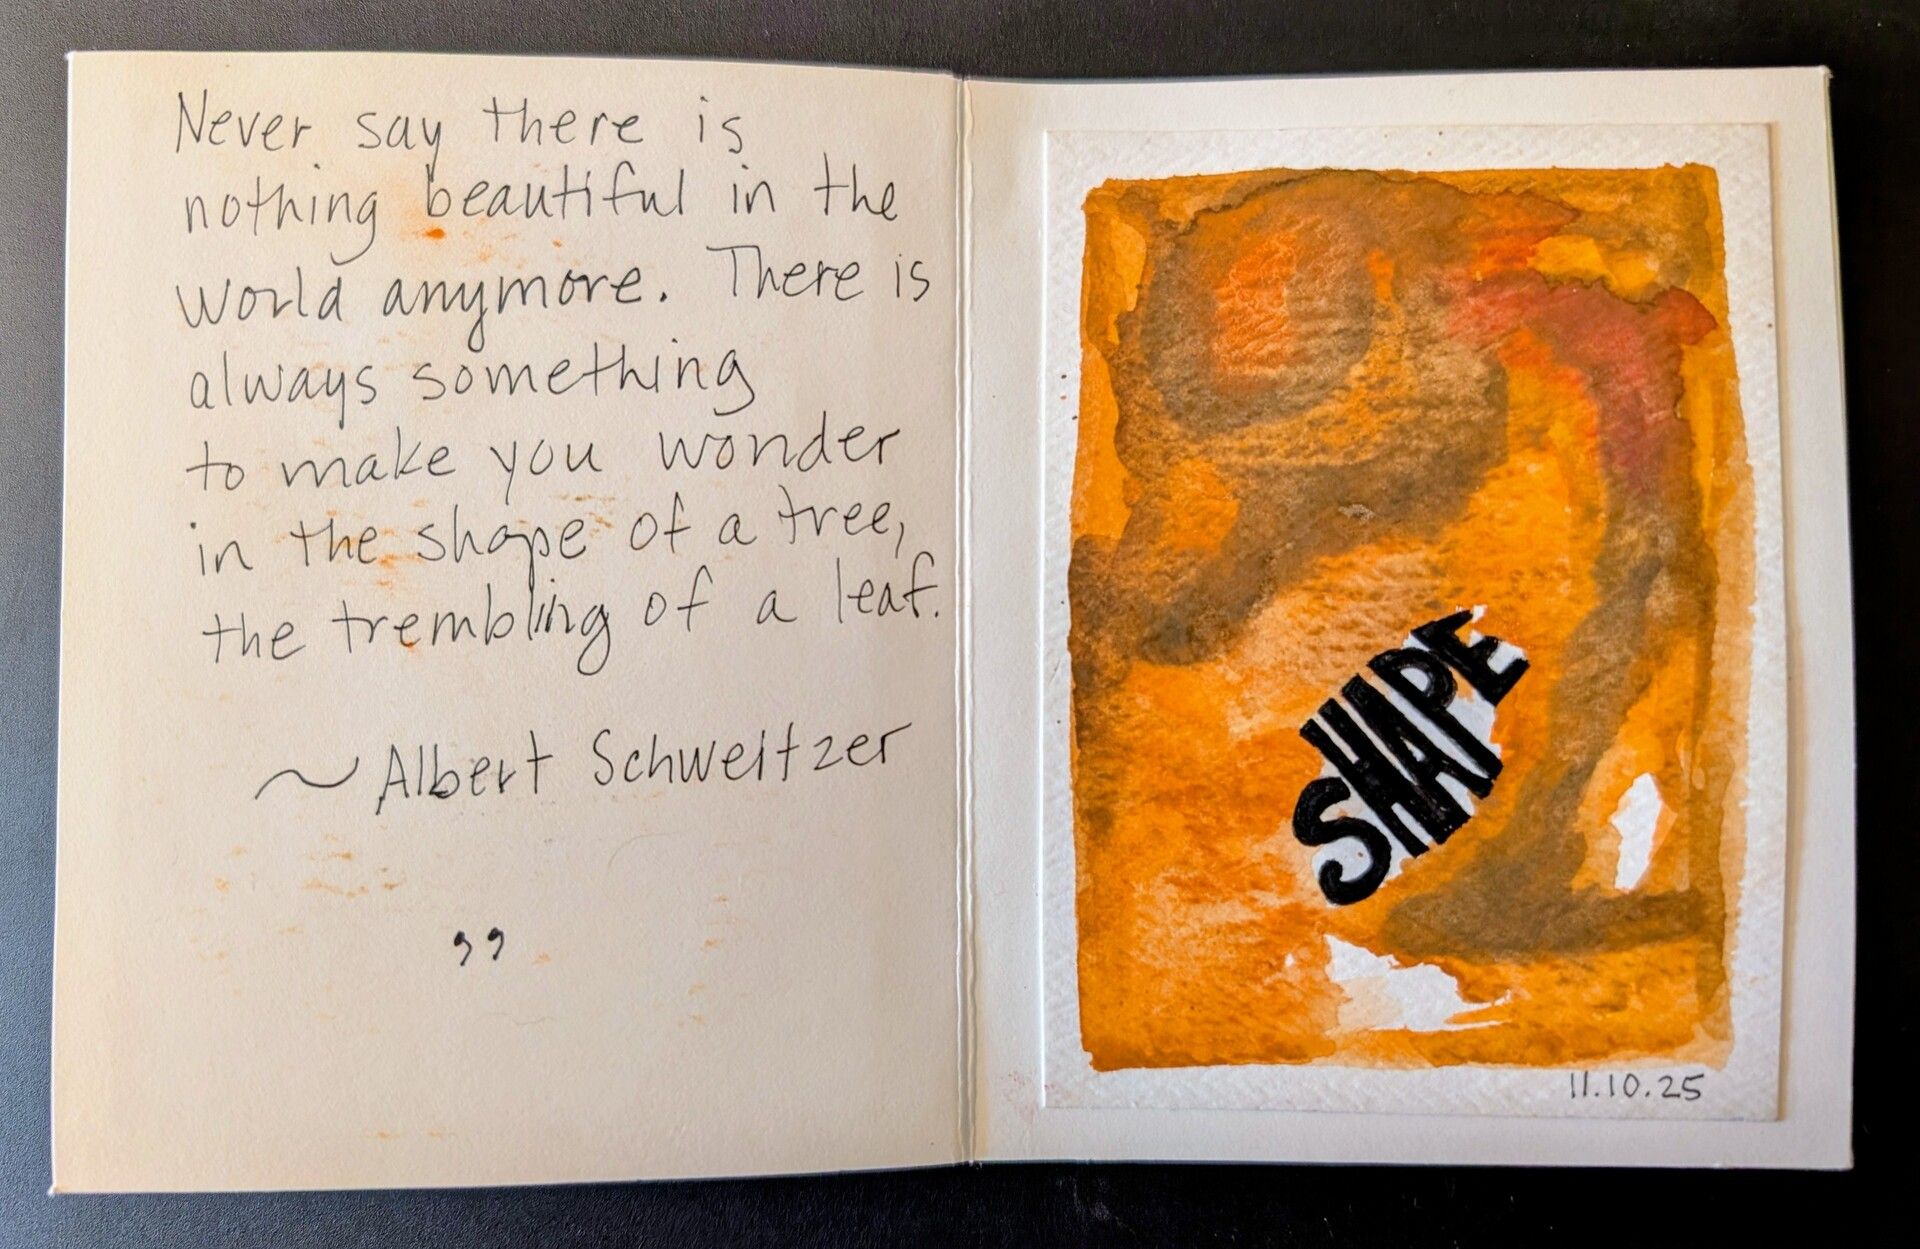 Never say there is
nothing beautiful in the
world anymore. There is
always something
to make you wonder
in the shape of a tree,
the trembling of a leaf.
~ Albert Schweitzer
”
SHAPE
11.10.25